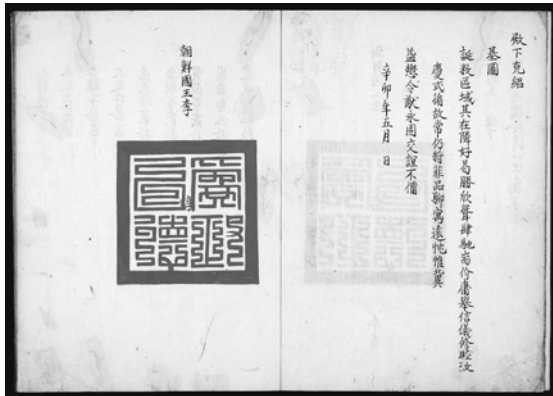 殿下克紹
基圖
誕敷區域其在隣好曷勝欣聳肆馳耑价庸擧信儀修睦
慶式循故常仍將菲品聊寓遠忱惟冀
益懋令猷永固交誼不備
辛卯年五月 日
朝鮮國王李